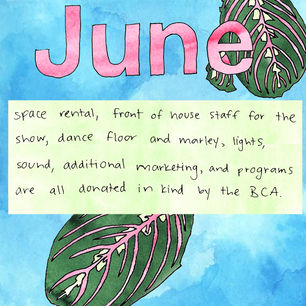 June
space rental, front of house staff for the
show, dance floor and marley, lights,
sound, additional marketing, and programs
are all donated in kind by the BCA.